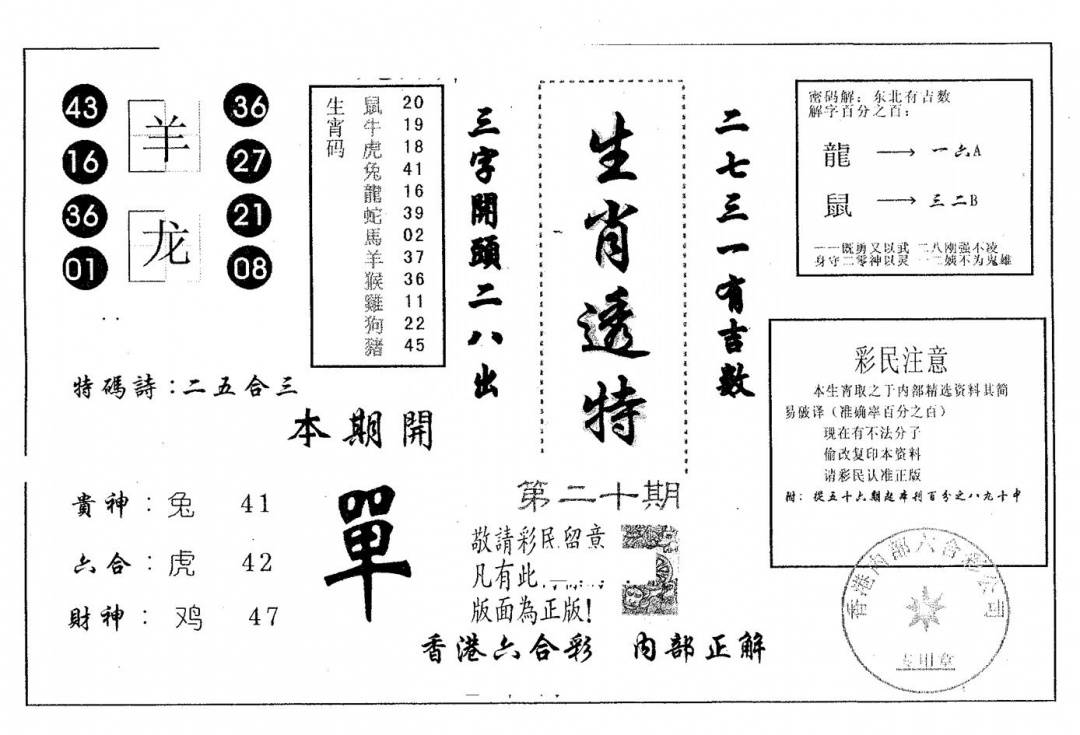 43
16
36
01
羊
龙
36
27
21
08
生宵码
鼠 20
牛 19
虎 18
兔 41
龍 16
蛇 39
馬 02
羊 37
猴 36
雞 11
狗 22
豬 45
三字開頭二八出
生肖透特
二七三一有吉数
密码解：东北有吉数
解字百分之百：
龍 → 一六A
鼠 → 三二B
一一既勇又以武 二八刚强不凌
身守二零神以灵 一二魂不为鬼雄
特碼詩：二五合三
本期開
單
貴神：兔 41
六合：虎 42
財神：鸡 47
第二十期
敬請彩民留意
凡有此
版面為正版！
香港六合彩 内部正解
彩民注意
本生宵取之于内部精选资料其简
易破译（准确率百分之百）
现在有不法分子
偷改复印本资料
请彩民认准正版
附：從五十六期起本刊百分之八九十中
香港内部六合彩公司
专用章